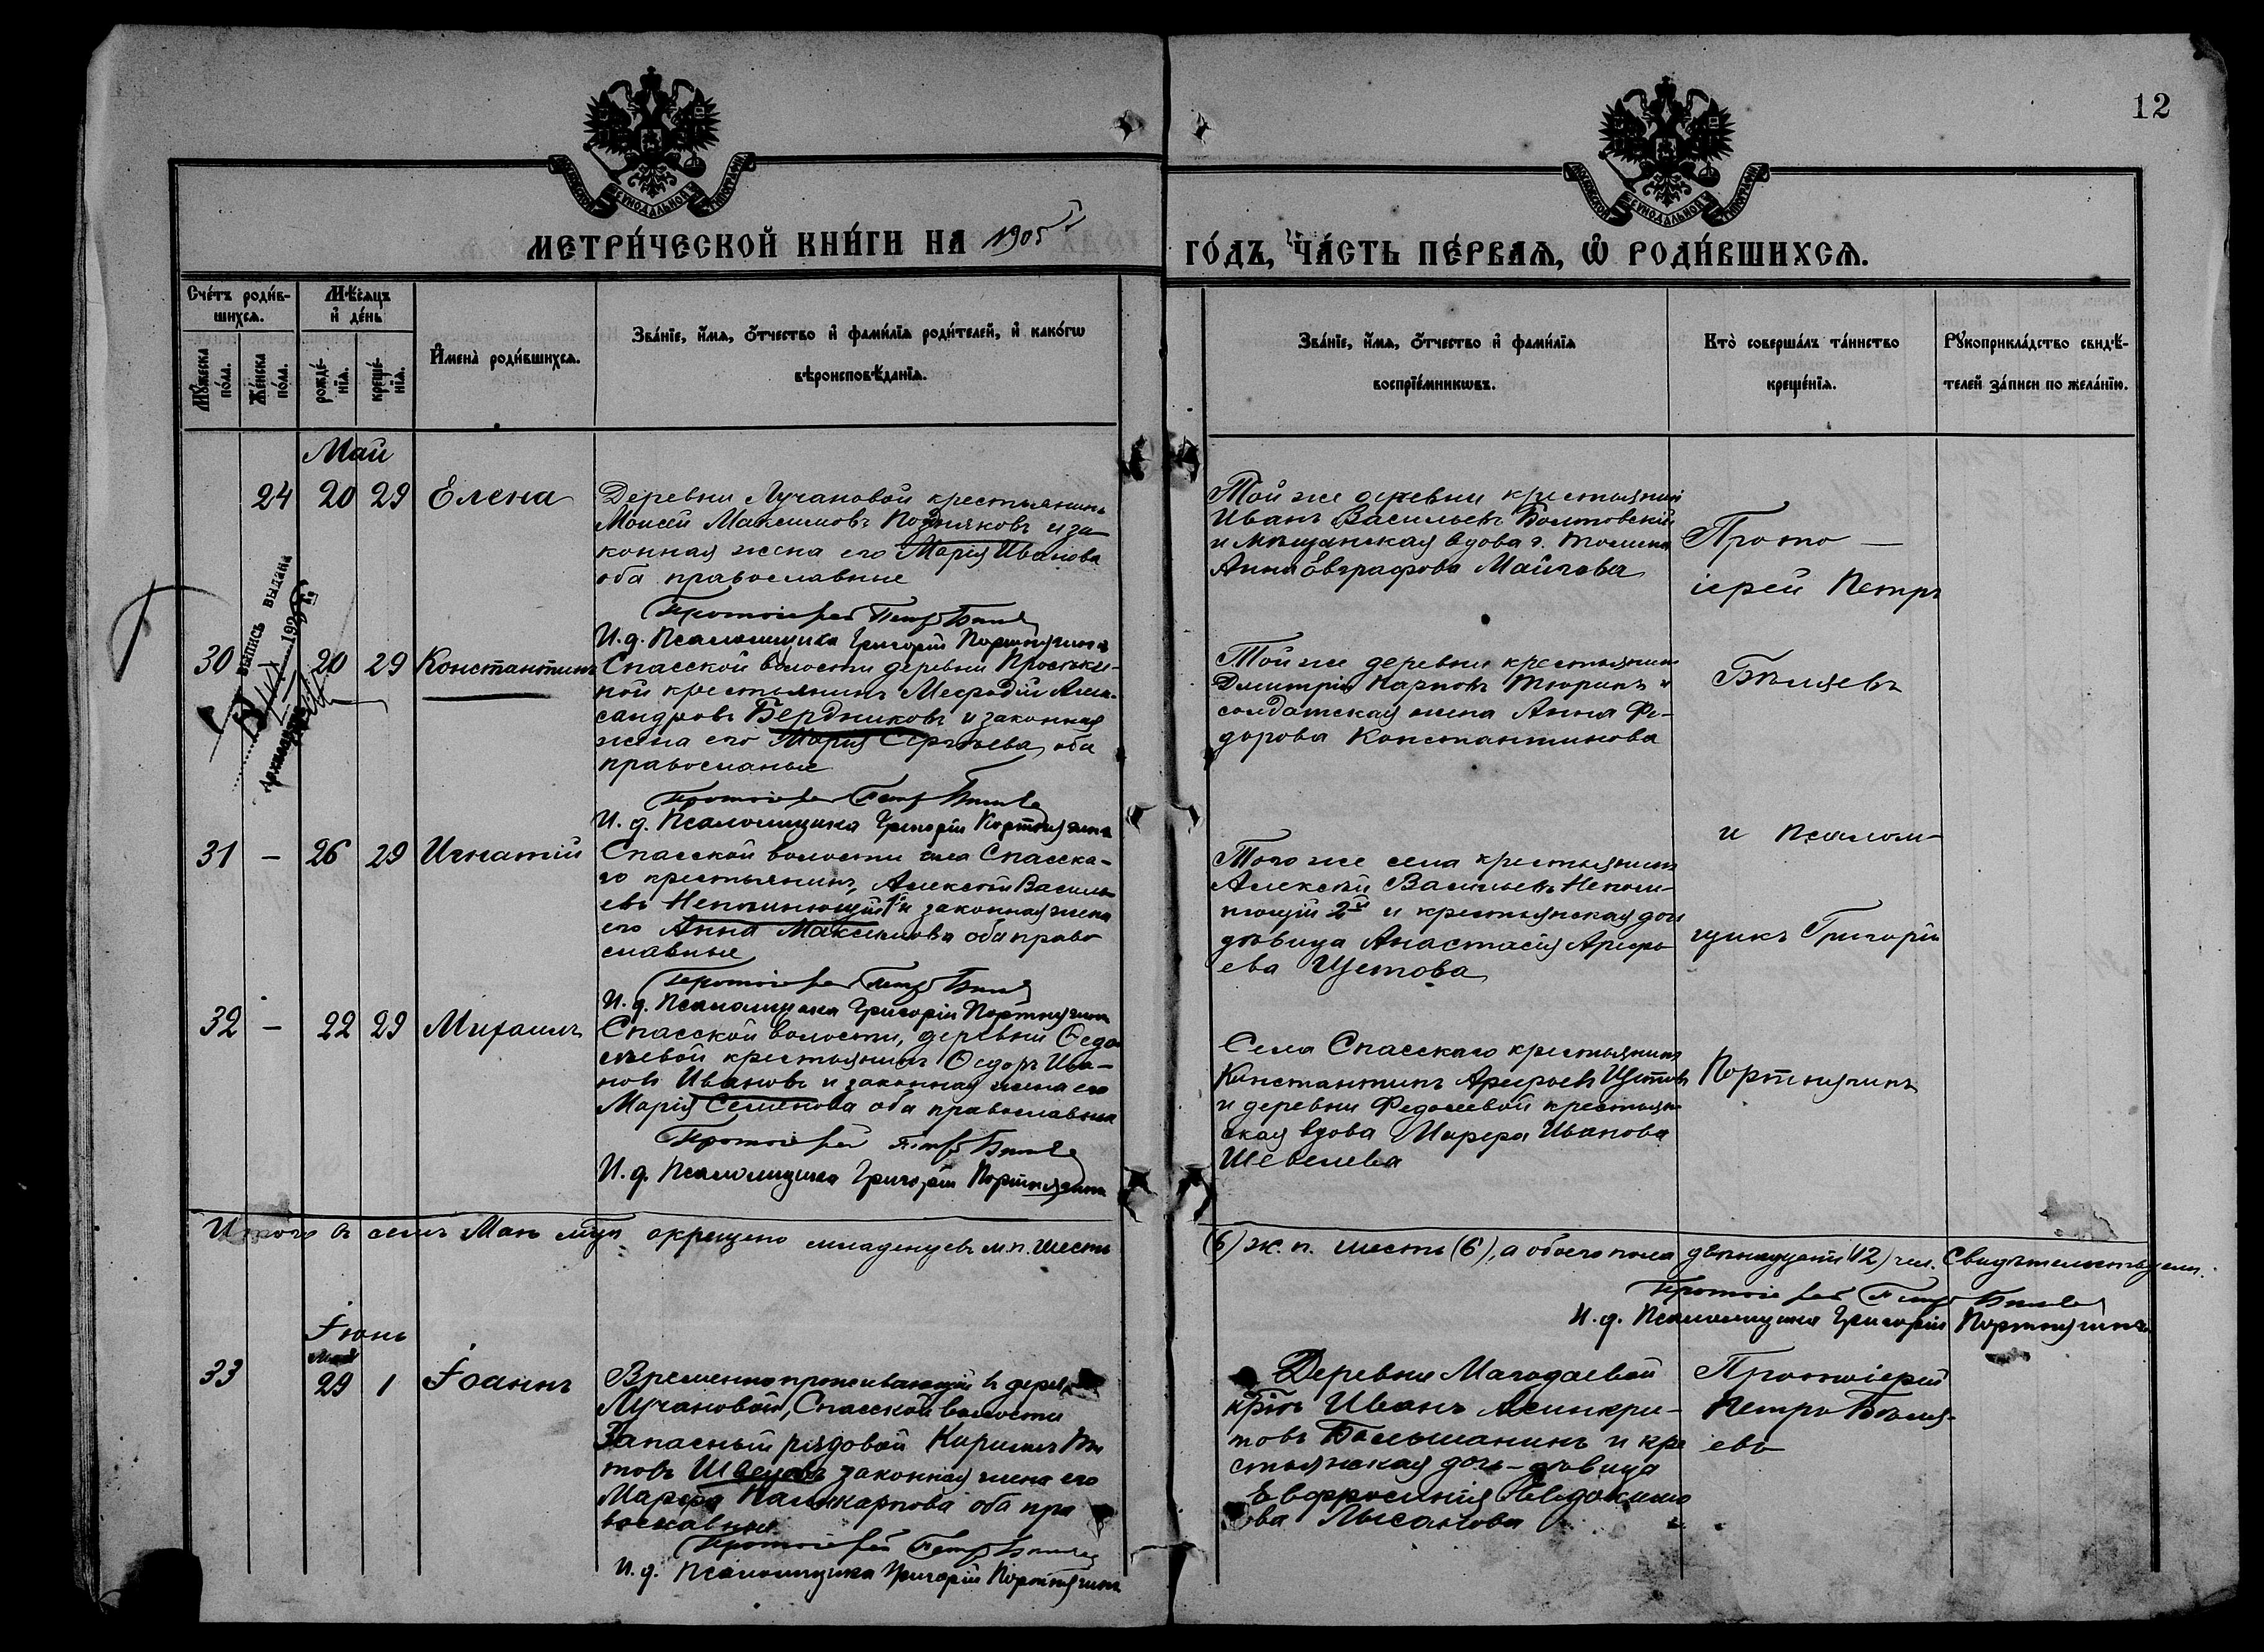 12
МЕТРИ́ЧЕСКОЙ КНИ́ГИ НА 1905й
ГО́ДЪ, ЧА́СТЬ ПЕ́РВАѦ, Ѡ РОДИ́ВШИХСѦ.
Сче́тъ роди́в-
шихсѧ.
Мѣ́сѧцъ
и҆ де́нь
Мꙋ́жеска
по́ла.
Же́нска
по́ла.
рожде́-
нїѧ.
креще́-
нїѧ.
И҆мена̀ роди́вшихсѧ.
Зва́нїе, и҆́мѧ, ѻ҆́тчество и҆ фами́лїѧ роди́телей, и҆ како́гѡ
вѣроисповѣ́данїѧ.
Зва́нїе, и҆́мѧ, ѻ҆́тчество и҆ фами́лїѧ
воспрїе́мникѡвъ.
Кто̀ соверша́лъ та́инство
креще́нїѧ.
Рꙋкоприкла́дство свидѣ́-
телей за́писи по жела́нїю.
Май
24 20 29 Елена
Деревни Лучановой крестьянинъ
Моисей Максимовъ Поздняковъ и за-
конная жена его Марія Иванова
оба православные
Протоіерей Петръ Бѣляев
И.д. Псаломщика Григорій Портнягинъ
Той же деревни крестьянин
Иванъ Васильевъ Болтовскій
и мѣщанская вдова г. Томска
Анна Евграфова Майкова
Прото-
іерей Петръ
Бѣляевъ
и псалом-
щикъ Григорій
Портнягинъ
выпись выдана
30 20 29 Константинъ
Спасской волости деревни Проскоки-
ной крестьянинъ Мефодій Алек-
сандровъ Бердниковъ и законная
жена его Марія Сергѣева, оба
православные
Протоіерей Петръ Бѣляев
И.д. Псаломщика Григорій Портнягинъ
Той же деревни крестьянинъ
Димитрій Карповъ Тюринъ и
солдатская жена Анна Фе-
дорова Константинова
31 - 26 29 Игнатій
Спасской волости села Спасска-
го крестьянинъ, Алексѣй Василь-
евъ Непомнющій 1й и законная жена
его Анна Максимова оба право
славные
Протоіерей Петръ Бѣляев
И.д. Псаломщика Григорій Портнягинъ
Того же села крестьянинъ
Алексѣй Васильевъ Непом-
нющій 2й и крестьянская доч
дѣвица Анастасія Арефь
ева Щетова
32 - 22 29 Михаилъ
Спасской волости, деревни Ѳедо
сѣевой крестьянинъ Ѳедоръ Ива-
новъ Ивановъ и законная жена его
Марія Семенова оба православные
Протоіерей Петръ Бѣляев
И.д. Псаломщика Григорій Портнягинъ
Села Спасскаго крестьянинъ
Константинъ Арефьевъ Щетовъ
и деревни Федосеевой крестьян-
ская вдова Марфа Иванова
Шевелева
Итого въ семъ Маѣ мѣсяцѣ окрещено младенцевъ м.п. шесть
(6) ж.п. шесть (6), а обоего пола двѣнадцать (12) чел. Свидѣтельствуемъ.
Протоіерей Петръ Бѣляев
И.д. Псаломщика Григорій Портнягинъ
Іюнь
Май
33 29 1 Іоаннъ
Временно проживающій въ дерев
Лучановой, Спасской волости
Запасный рядовой Кирилъ Ти
товъ Швецовъ законная жена его
Марфа Поликарпова оба пра
вославные
Протоіерей Петръ Бѣляев
И.д. Псаломщика Григорій Портнягинъ
Деревни Магадаевой
кр̃нъ Иванъ Асинкри-
товъ Большанинъ и кре
стьянская дочь-дѣвица
Евфросинія Евдокимо
ва Лысанова
Протоіерей
Петръ Бѣля-
евъ